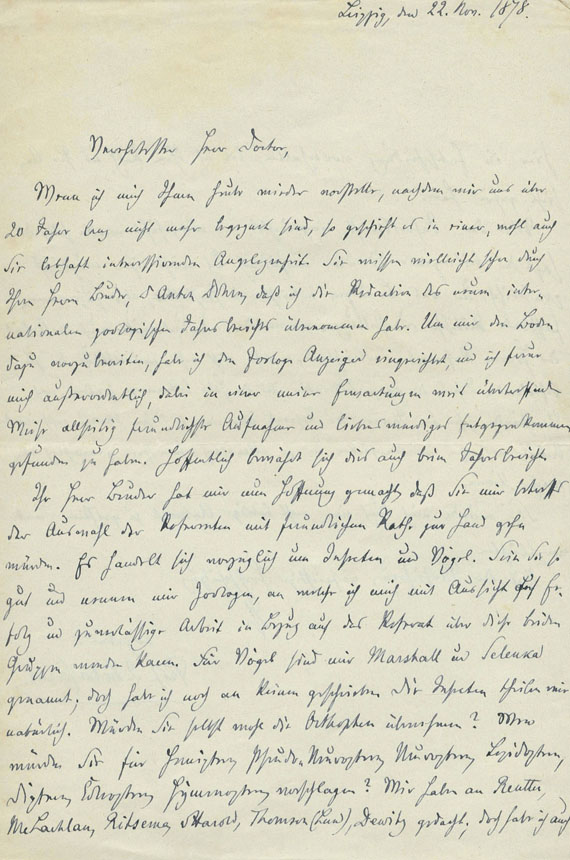 Leipzig, den 22. Nov. 1878.
Verehrtester Herr Doctor,
Wenn ich mich Ihnen heute wieder vorstelle, nachdem wir uns über
20 Jahre lang nicht mehr begegnet sind, so geschieht es in einer, wohl auch
Sie lebhaft interessirenden Angelegenheit. Sie wissen vielleicht schon durch
Ihren Herrn Bruder, Dr Anton Dohrn, daß ich die Redaction des neuen inter-
nationalen zoologischen Jahresberichts übernommen habe. Um mir den Boden
dazu vorzubereiten, habe ich den Zoolog. Anzeiger eingerichtet, und ich freue
mich außerordentlich, dabei in einer meine Erwartungen weit übertreffenden
Weise allseitig freundlichste Aufnahme und liebenswürdiges Entgegenkommen
gefunden zu haben. Hoffentlich bewährt sich dies auch beim Jahresbericht.
Ihr Herr Bruder hat mir nun Hoffnung gemacht, daß Sie mir betreffs
der Auswahl der Referenten mit freundlichem Rathe zur Hand gehen
würden. Es handelt sich vorzüglich um Insecten und Vögel. Seien Sie so
gut und nennen mir Zoologen, an welche ich mich mit Aussicht auf Er-
folg und zuverlässige Arbeit in Bezug auf das Referat über diese beiden
Gruppen wenden kann. Für Vögel sind mir Marshall und Selenka
genannt; doch habe ich noch an keinen geschrieben. Die Insecten theilen wir
natürlich. Würden Sie selbst wohl die Orthoptern übernehmen? Wen
würden Sie für Hemiptern, Pseudo-Neuroptern, Neuroptern, Lepidoptern,
Diptern, Coleoptern, Hymenoptern vorschlagen? Wir haben an Reuter,
McLachlan, Ritsema, v Harold, Thomson (Lund), Dewitz gedacht, doch habe ich auch